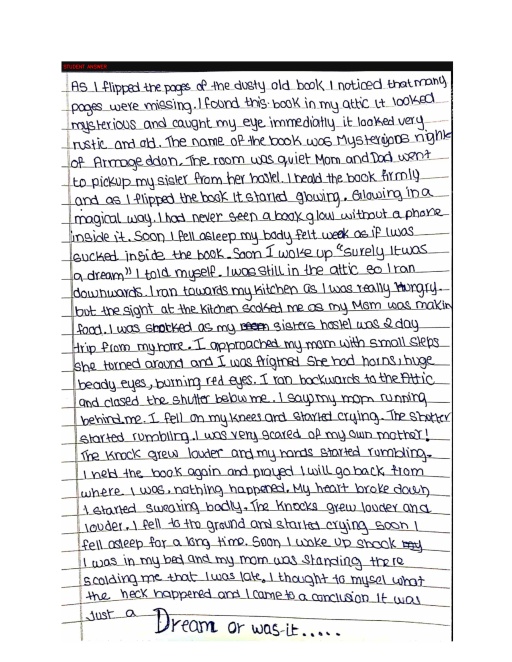 STUDENT ANSWER
As I flipped the pages of the dusty old book I noticed that many
pages were missing. I found this book in my attic it looked
mysterious and caught my eye immediatly it looked very
rustic and old. The name of the book was Mysterious night
of Armageddon. The room was quiet Mom and Dad went
to pickup my sister from her hostel. I heald the book firmly
and as I flipped the book it started glowing. Glowing in a
magical way. I had never seen a book glow without a phone
inside it. Soon I fell asleep my body felt week as if I was
sucked inside the book. Soon I woke up "surely It was
a dream" I told myself. I was still in the attic so I ran
downwards. I ran towards my kitchen as I was really Hungry.
but the sight at the kitchen scaked me as my Mom was makin
food. I was shocked as my sisters hostel was 2 day
trip from my home. I approached my mom with small steps
she turned around and I was frigtned She had horns, huge
beady eyes, burning red eyes. I ran backwards to the Attic
and closed the shutter below me. I say my mom running
behind me. I fell on my knees and started crying. The shutter
started rumbling. I was very scared of my own mother!
The knock grew louder and my hands started rumbling.
I held the book again and prayed I will go back from
where I was, nothing happened. My heart broke down
I started sweating badly. The knocks grew louder and
louder. I fell to the ground and started crying soon I
fell asleep for a long time. Soon I woke up shook
I was in my bed and my mom was standing there
scolding me that I was late. I thought to mysel what
the heck happened and I came to a conclusion It was
Just a Dream or was it.....